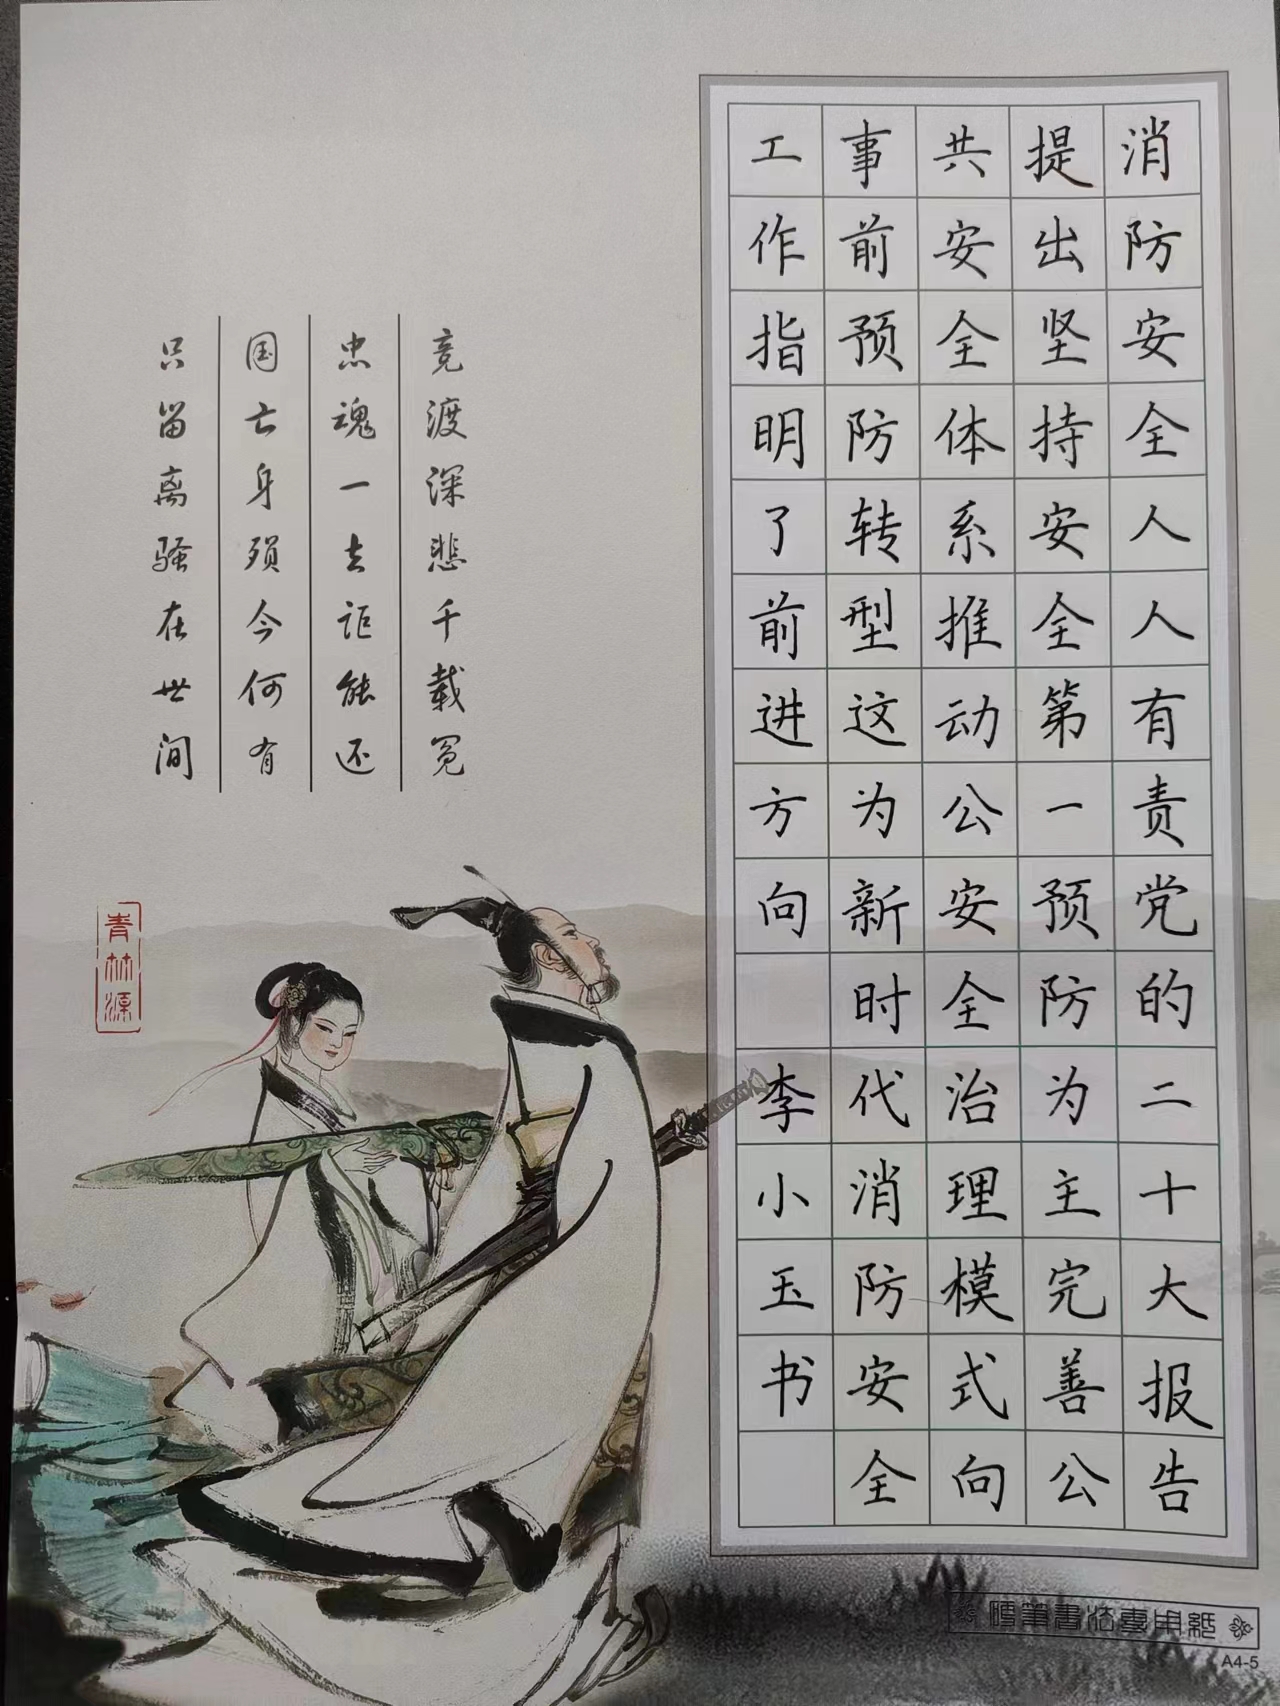 消防安全人人有责党的二十大报告
提出坚持安全第一预防为主完善公
共安全体系推动公安全治理模式向
事前预防转型这为新时代消防安全
工作指明了前进方向 李小玉书
竞渡深悲千载冤
忠魂一去讵能还
国亡身殒今何有
只留离骚在世间
青林源
硬筆書法專用紙
A4-5